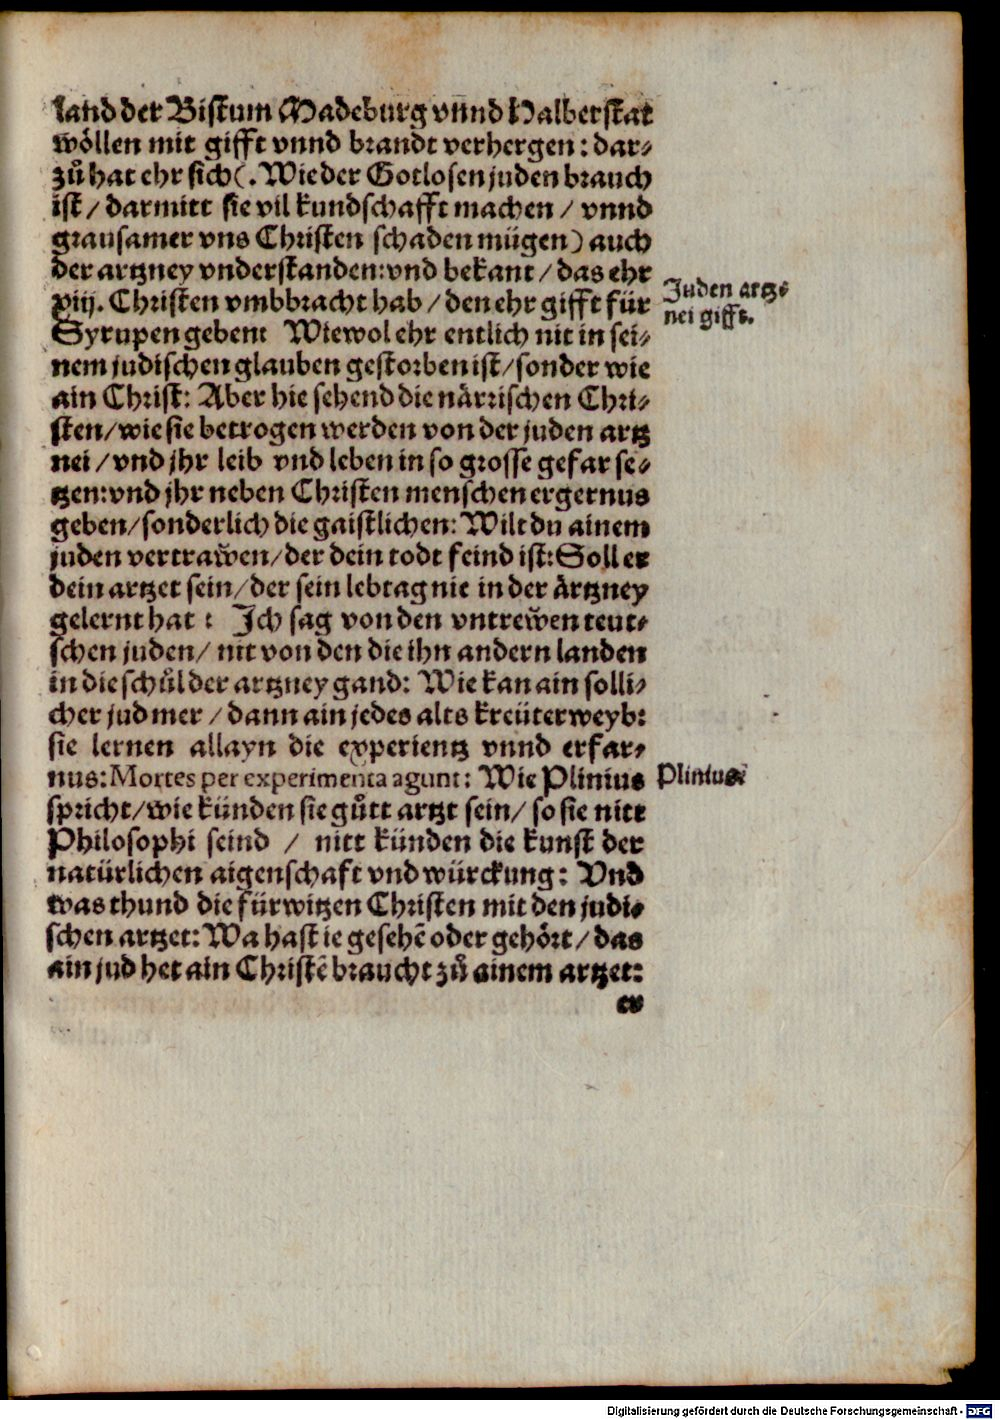 land der Bistum Madeburg vnnd Halberstat
wöllen mit gifft vnnd brandt verhergen: dar⸗
zů hat ehr sich(. Wie der Gotlosen juden brauch
ist / darmitt sie vil kundschafft machen / vnnd
grausamer vns Christen schaden mügen) auch
der artzney vnderstanden: vnd bekant / das ehr
xiij. Christen vmbbracht hab / den ehr gifft für
Syrupen geben: Wiewol ehr entlich nit in sei⸗
nem judischen glauben gestorben ist / sonder wie
ain Christ: Aber hie sehend die närrischen Chri⸗
sten / wie sie betrogen werden von der juden artz
nei / vnd jhr leib vnd leben in so grosse gefar se⸗
tzen: vnd jhr neben Christen menschen ergernus
geben / sonderlich die gaistlichen: Wilt du ainem
juden vertrawen / der dein todt feind ist: Soll er
dein artzet sein / der sein lebtag nie in der ärtzney
gelernt hat : Ich sag von den vntrewen teut⸗
schen juden / nit von den die ihn andern landen
in die schůl der artzney gand: Wie kan ain solli⸗
cher jud mer / dann ain jedes alts kreüterweyb:
sie lernen allayn die experientz vnnd erfar⸗
nus: Mortes per experimenta agunt: Wie Plinius
spricht / wie künden sie gůtt artzt sein / so sie nitt
Philosophi seind / nitt künden die kunst der
natürlichen aigenschaft vnd würckung: Vnd
was thund die fürwitzen Christen mit den judi⸗
schen artzet: Wa hast ie gesehē oder gehört / das
ain jud het ain Christē braucht zů ainem artzet:
er
Juden artz⸗
nei gifft.
Plinius
Digitalisierung gefördert durch die Deutsche Forschungsgemeinschaft - DFG